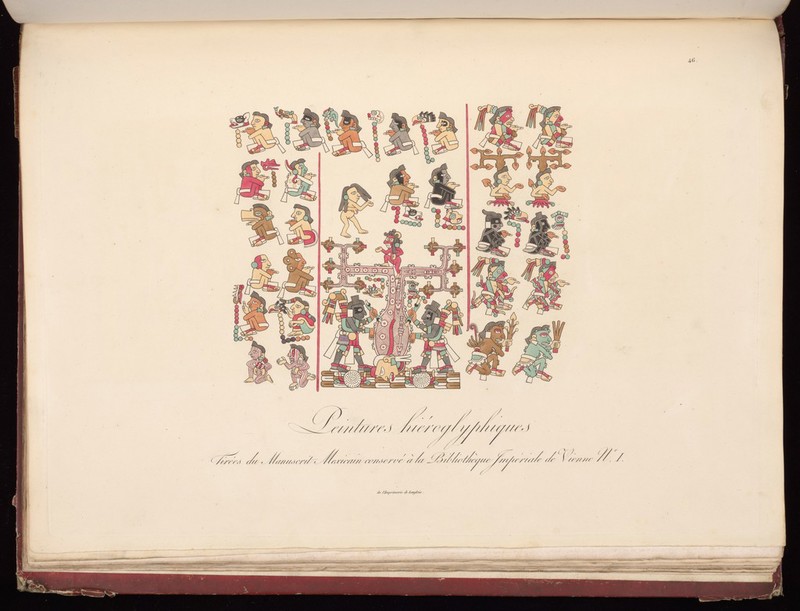 46.
Peintures hiéroglyphiques
Tirées du Manuscrit Mexicain conservé à la Bibliothèque Impériale de Vienne N.º 1.
de l'Imprimerie de Langlois.